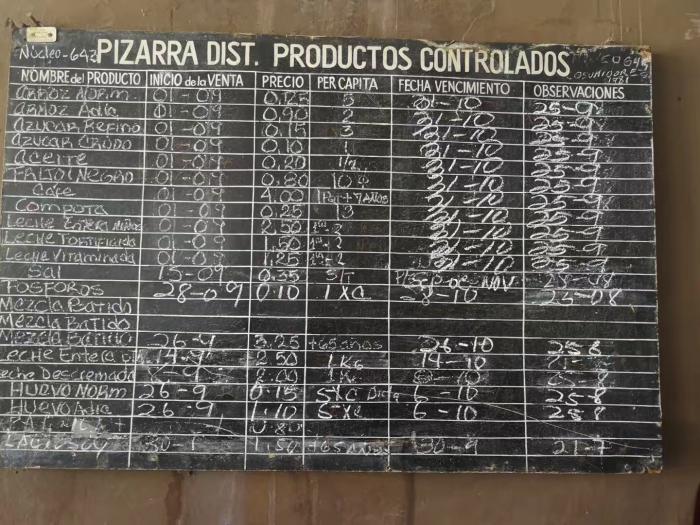 Núcleo-643 PIZARRA DIST. PRODUCTOS CONTROLADOS
NOMBRE del PRODUCTO INICIO de la VENTA PRECIO PER CAPITA FECHA VENCIMIENTO OBSERVACIONES
ARROZ NORM. 01-09 5 31-10
ARROZ Adic 01-09 0.90 2 31-10
AZUCAR REFINO 01-09 0.15 3 31-10 25-9
AZUCAR CRUDO 01-09 0.10 1 31-10 25-9
ACEITE 01-09 0.20 1/2 31-10 25-9
FRIJOL NEGRO 01-09 0.80 31-10 25-9
Café 01-09 4.00 31-10 25-9
COMPOTA 01-09 0.25 13 31-10 25-9
Leche Entera 01-09 2.50 31-10 25-9
Leche Fortificada 01-09 1.50 31-10 25-9
Leche Vitaminada 01-09 1.25 31-10 25-9
Sal 15-09 0.35 S/T NOV 25-08
FOSFOROS 28-09 0.10 1 XC 28-10 25-08
Mezcla Batido
Mezcla Batido
Mezcla Batido 26-9 +65 años 26-10 25-8
Leche Entera 2.50 1 Kg 19-10
Leche Descremada 2.00 25-8
HUEVO NORM 26-9 0.15 5 XC 6-10 25-8
HUEVO Adic 26-9 1.10 5-XC 6-10 25-8
0.80
1.50 +65 años 30-9 21-7